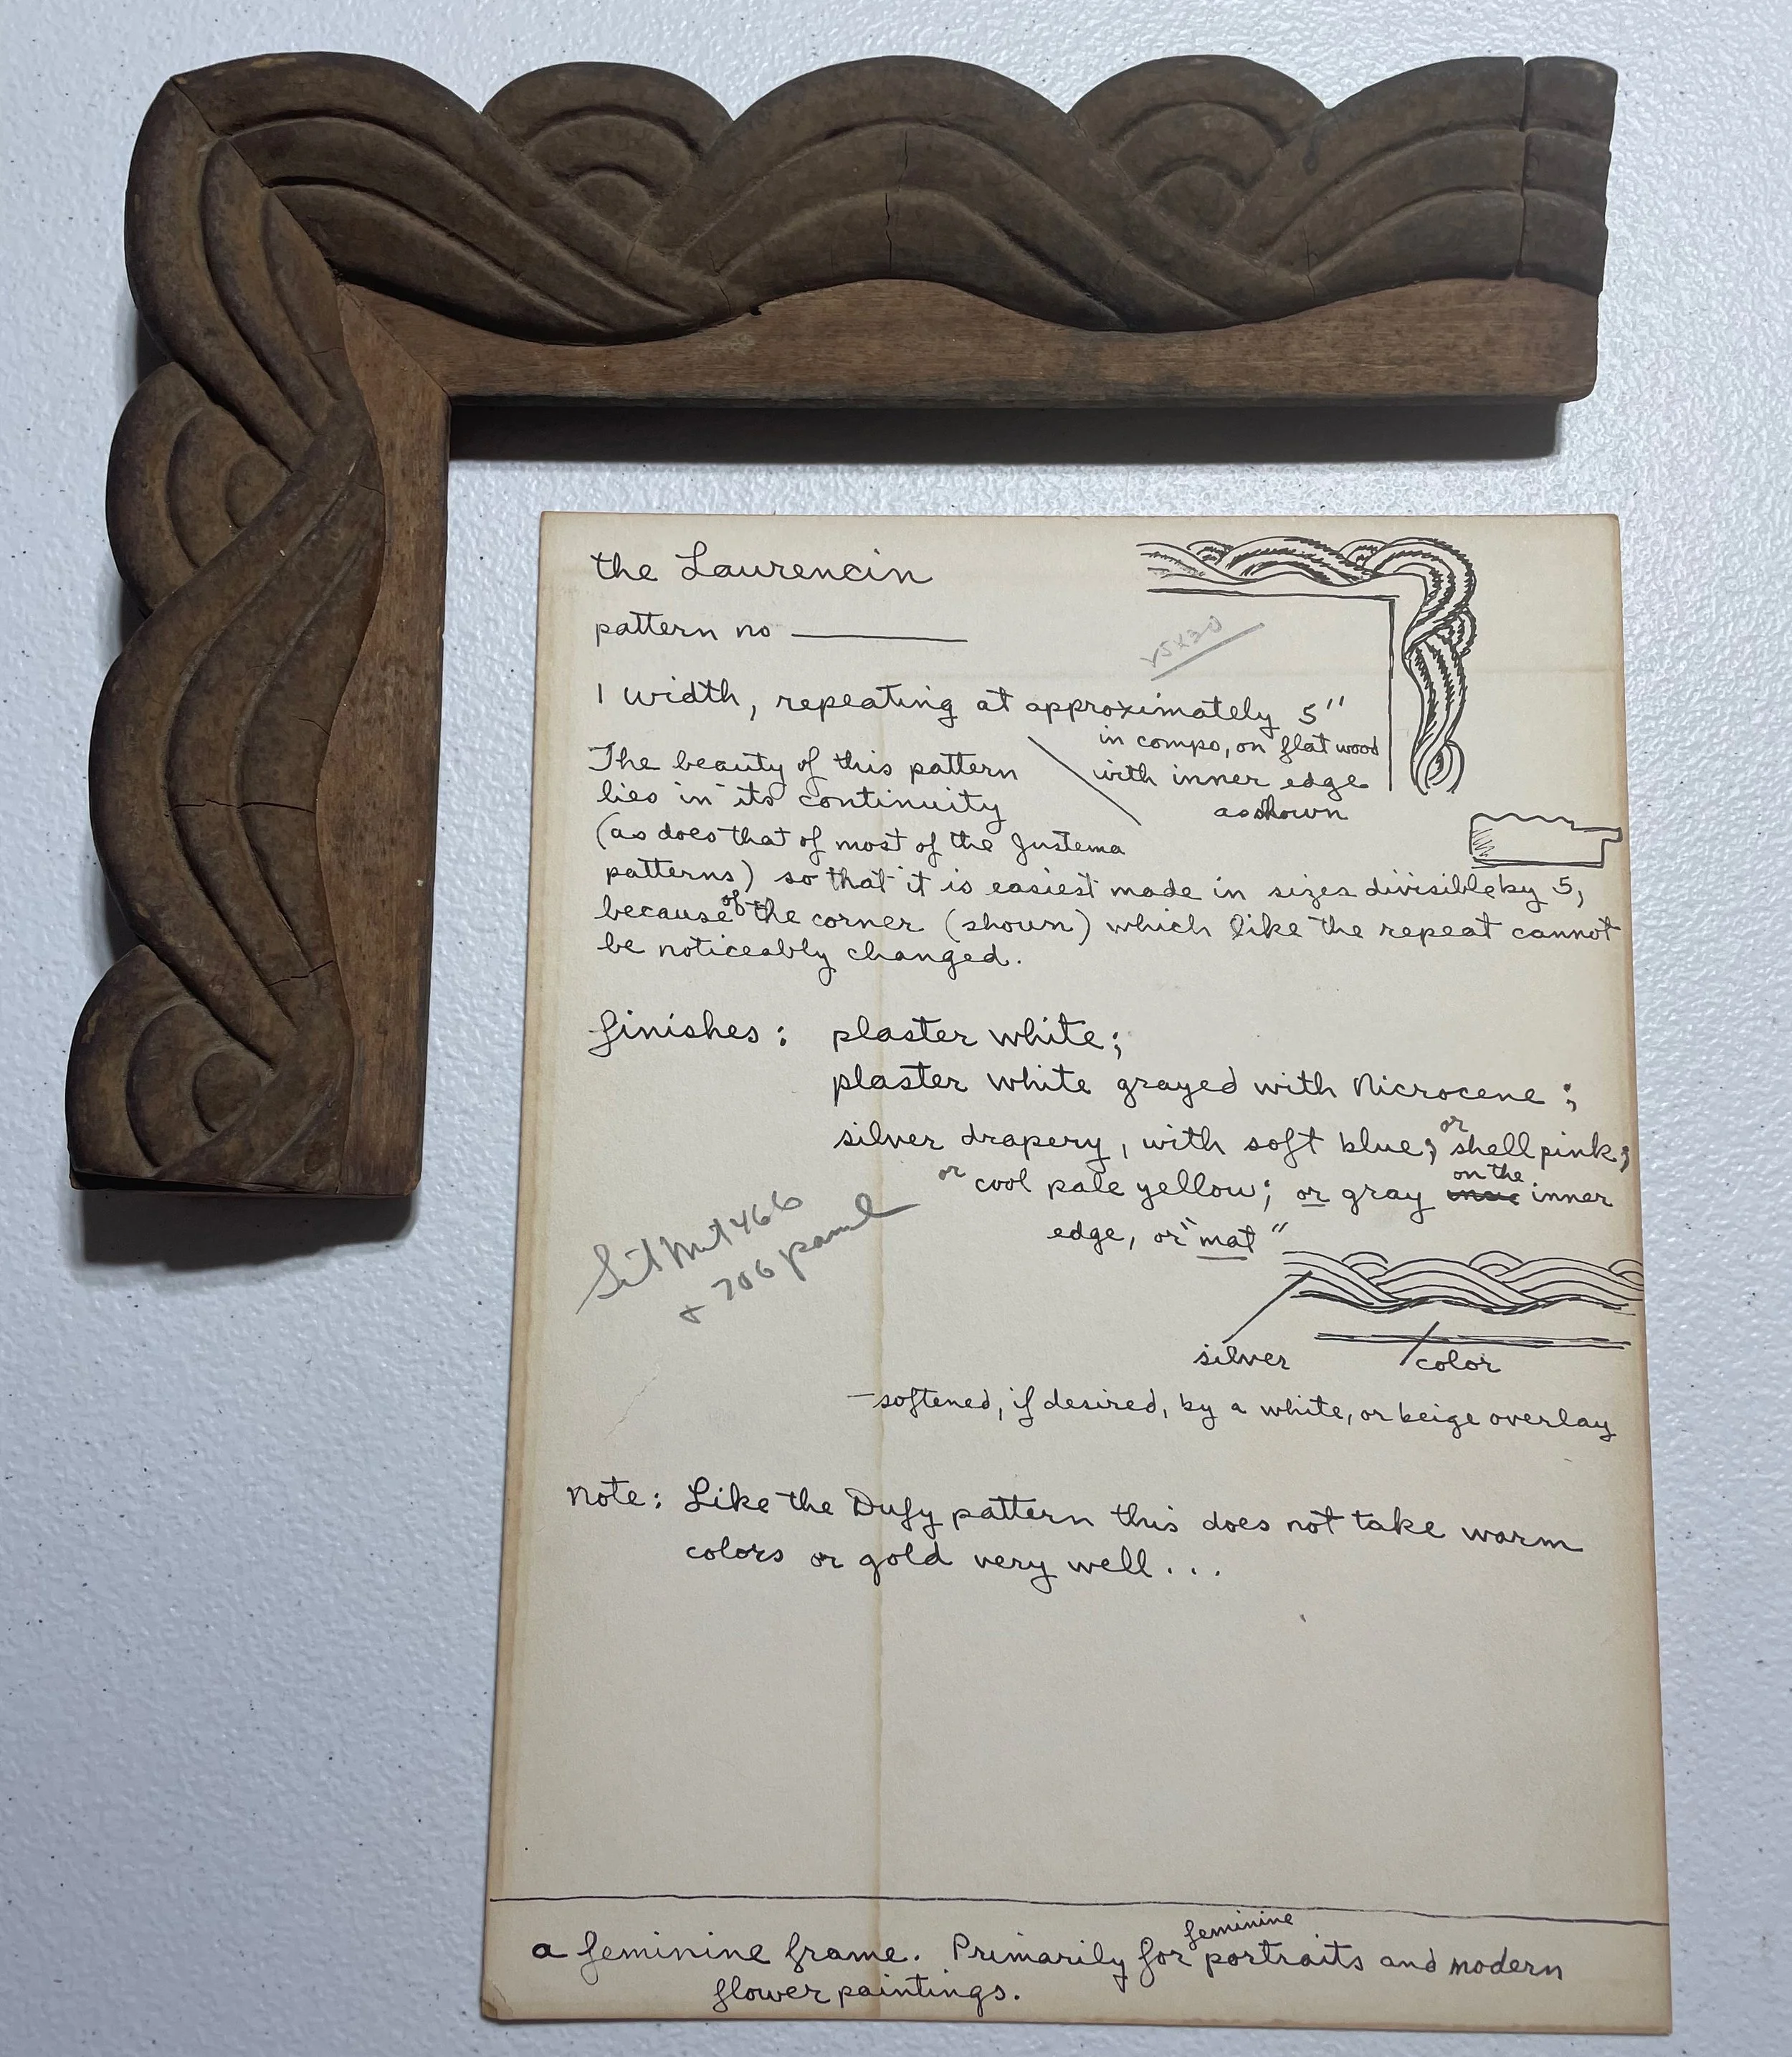 the Laurencin
pattern no ______
25x30
1 width, repeating at approximately 5"
in compo, on flat wood
with inner edge
as shown
The beauty of this pattern
lies in its continuity
(as does that of most of the Justema
patterns) so that it is easiest made in sizes divisible by 5,
because of the corner (shown) which like the repeat cannot
be noticeably changed.
finishes: plaster white;
plaster white grayed with Nicrocene;
silver drapery, with soft blue; or shell pink;
or cool pale yellow; or gray on the inner
edge, or "mat"
466
+ 706 panel
silver
color
—softened, if desired, by a white, or beige overlay
Note: Like the Dufy pattern this does not take warm
colors or gold very well...
a feminine frame. Primarily for feminine portraits and modern
flower paintings.